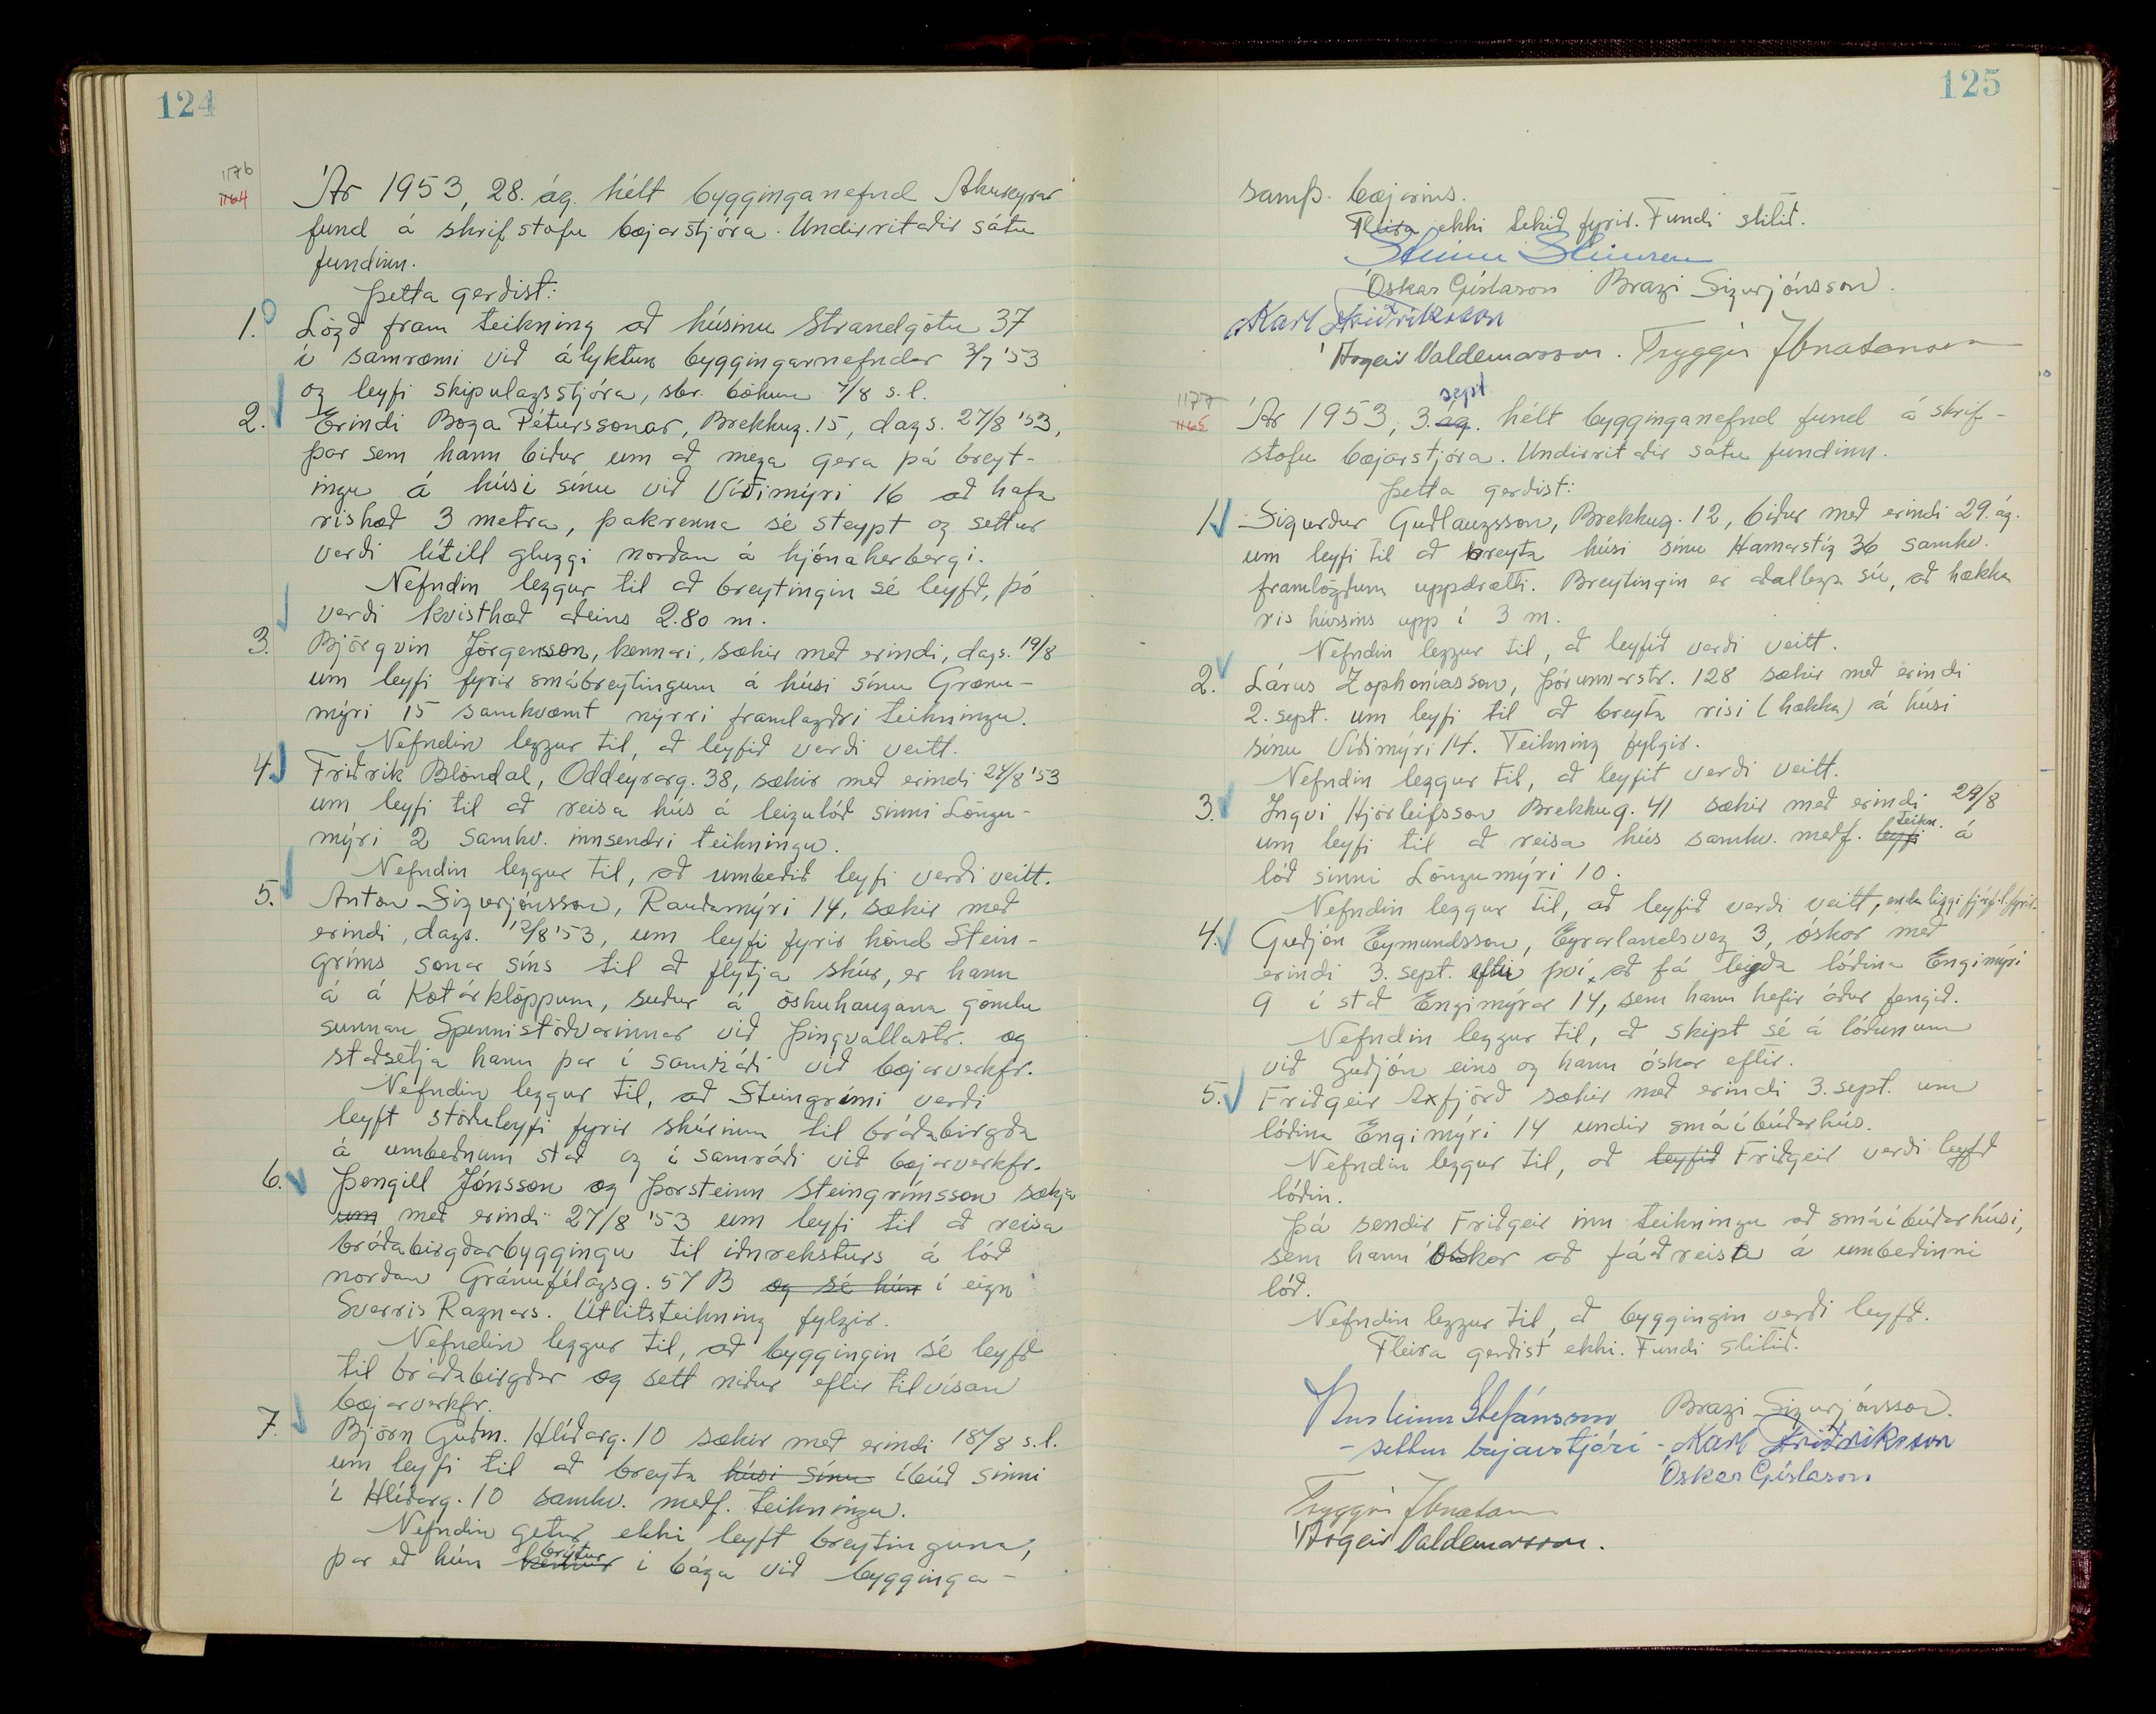 124
1176
1164
Ár 1953, 28. ág. hélt bygginganefnd Akureyrar
fund á skrifstofu bæjarstjóra. Undirritaðir sátu
fundinn.
Þetta gerðist:
1. Lögð fram teikning að húsinu Strandgötu 37
í samræmi við ályktun byggingarnefndar 3/7 '53
og leyfi skipulagsstjóra, sbr. bókun 7/8 s.l.
2. Erindi Boga Péturssonar, Brekkug. 15, dags. 27/8 '53,
þar sem hann biður um að mega gera þá breyt-
ingu á húsi sínu við Víðimýri 16 að hafa
rishæð 3 metra, þakrenna sé steypt og settur
verði lítill gluggi norðan á hjónaherbergi.
Nefndin leggur til að breytingin sé leyfð, þó
verði kvisthæð aðeins 2.80 m.
3. Björgvin Jörgensson, kennari, sækir með erindi, dags. 19/8
um leyfi fyrir smábreytingum á húsi sínu Grænu-
mýri 15 samkvæmt nýrri framlagðri teikningu.
Nefndin leggur til, að leyfið verði veitt.
4. Friðrik Blöndal, Oddeyrarg. 38, sækir með erindi 24/8 '53
um leyfi til að reisa hús á leigulóð sinni Löngu-
mýri 2 samkv. innsendri teikningu.
Nefndin leggur til, að umbeðið leyfi verði veitt.
5. Anton Sigurjónsson, Rauðamýri 14, sækir með
erindi, dags. 12/8 '53, um leyfi fyrir hönd Stein-
gríms sonar síns til að flytja skúr, er hann
á á Kotárklöppum, suður á öskuhaugana gömlu
sunnan Spennistöðvarinnar við Þingvallastr. og
staðsetja hann þar í samráði við bæjarverkfr.
Nefndin leggur til, að Steingrími verði
leyft stöðuleyfi fyrir skúrinn til bráðabirgða
á umbeðnum stað og í samráði við bæjarverkfr.
6. Þengill Jónsson og Þorsteinn Steingrímsson sækja
um með erindi 27/8 '53 um leyfi til að reisa
bráðabirgðarbyggingu til iðnreksturs á lóð
norðan Gránufélagsg. 57 B og sé hún í eign
Sverris Ragnars. Útlitsteikning fylgir.
Nefndin leggur til, að byggingin sé leyfð
til bráðabirgðar og sett niður eftir tilvísan
bæjarverkfr.
7. Björn Guðm. Hlíðarg. 10 sækir með erindi 18/8 s.l.
um leyfi til að breyta húsi sínu íbúð sinni
í Hlíðarg. 10 samkv. meðf. teikningu.
Nefndin getur ekki leyft breytinguna,
brýtur
þar eð hún kemur í bága við bygginga-
125
samþ. bæjarins.
Fleira ekki tekið fyrir. Fundi slitið.
Steinn Steinsen
Óskar Gíslason Bragi Sigurjónsson.
Karl Friðriksson
Ásgeir Valdemarsson. Tryggvi Jónatansson
1177
1165
sept
Ár 1953, 3. ág. hélt bygginganefnd fund á skrif-
stofu bæjarstjóra. Undirritaðir sátu fundinn.
Þetta gerðist:
1. Sigurður Guðlaugsson, Brekkug. 12, biður með erindi 29. ág.
um leyfi til að breyta húsi sínu Hamarstíg 36 samkv.
framlögðum uppdrætti. Breytingin er aðallega sú, að hækka
ris hússins upp í 3 m.
Nefndin leggur til, að leyfið verði veitt.
2. Lárus Zophoníasson, Þórunnarstr. 128 sækir með erindi
2. sept. um leyfi til að breyta risi (hækka) á húsi
sínu Víðimýri 14. Teikning fylgir.
Nefndin leggur til, að leyfið verði veitt.
3. Ingvi Hjörleifsson Brekkug. 41 sækir með erindi 29/8
teikn.
um leyfi til að reisa hús samkv. meðf. leyfi á
lóð sinni Löngumýri 10.
Nefndin leggur til, að leyfið verði veitt, enda liggi fjárf.l. fyrir.
4. Guðjón Eymundsson, Eyrarlandsveg 3, óskar með
erindi 3. sept. eftir því, að fá leigða lóðina Engimýri
9 í stað Engimýrar 14, sem hann hefir áður fengið.
Nefndin leggur til, að skipt sé á lóðunum
við Guðjón eins og hann óskar eftir.
5. Friðgeir Axfjörð sækir með erindi 3. sept. um
lóðina Engimýri 14 undir smáíbúðarhús.
Nefndin leggur til, að leyfið Friðgeir verði leyfð
lóðin.
Þá sendir Friðgeir inn teikningu að smáíbúðarhúsi,
sem hann óskar að fá að reisa á umbeðinni
lóð.
Nefndin leggur til, að byggingin verði leyfð.
Fleira gerðist ekki. Fundi slitið.
Stefánsson Bragi Sigurjónsson.
- settur bæjarstjóri - Karl Friðriksson
Óskar Gíslason
Tryggvi Jónatans
Ásgeir Valdemarsson.